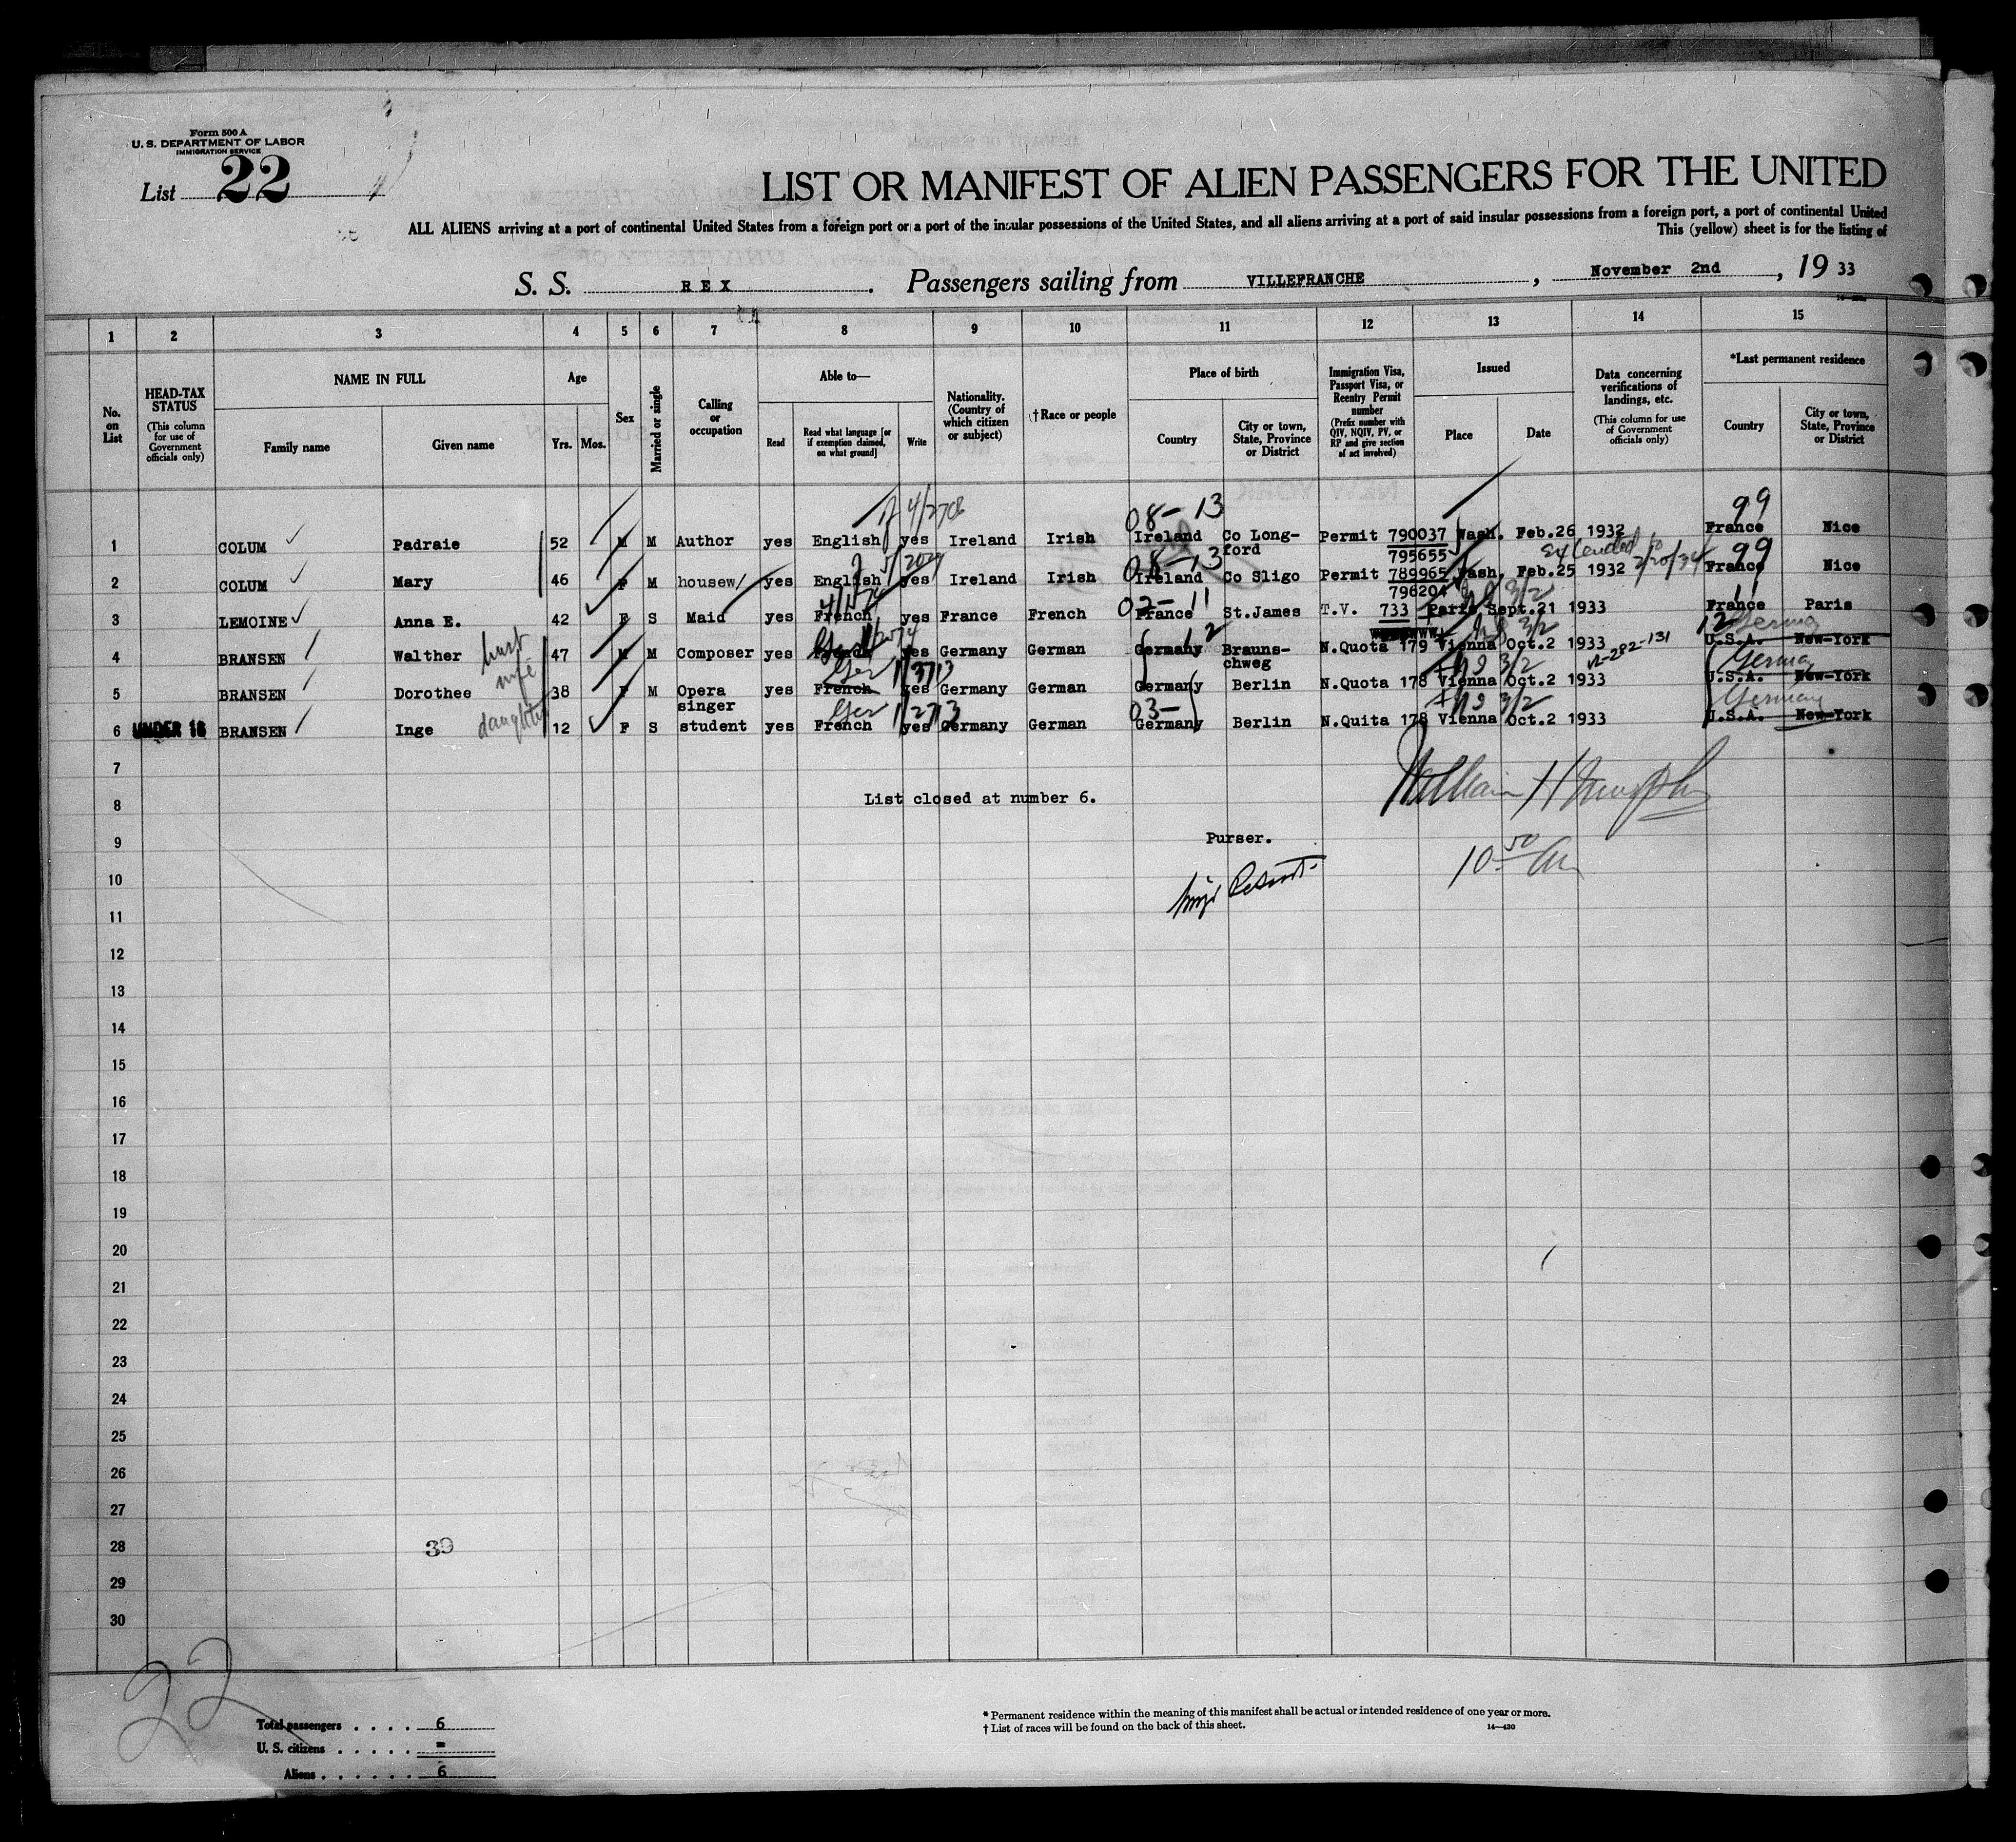 Form 500 A
U. S. DEPARTMENT OF LABOR
IMMIGRATION SERVICE
List 22
LIST OR MANIFEST OF ALIEN PASSENGERS FOR THE UNITED
ALL ALIENS arriving at a port of continental United States from a foreign port or a port of the insular possessions of the United States, and all aliens arriving at a port of said insular possessions from a foreign port, a port of continental United
This (yellow) sheet is for the listing of
S. S. REX. Passengers sailing from VILLEFRANCHE, November 2nd, 19 33
1 2 3 4 5 6 7 8 9 10 11 12 13 14 15
No. on List
HEAD-TAX STATUS
(This column for use of Government officials only)
NAME IN FULL
Family name
Given name
Age
Yrs. Mos.
Sex
Married or single
Calling or occupation
Able to—
Read
Read what language [or if exemption claimed, on what ground]
Write
Nationality. (Country of which citizen or subject)
† Race or people
Place of birth
Country
City or town, State, Province or District
Immigration Visa, Passport Visa, or Reentry Permit number
(Prefix number with QIV, NQIV, PV, or RP and give section of act involved)
Issued
Place
Date
Data concerning verifications of landings, etc.
(This column for use of Government officials only)
*Last permanent residence
Country
City or town, State, Province or District
4/2708
08-13
99
1 COLUM Padraie 52 M M Author yes English yes Ireland Irish Ireland Co Longford Permit 790037 Wash. Feb.26 1932 France Nice
795655
extended to 2/20/34
08-13
99
2 COLUM Mary 46 F M housew/ yes English yes Ireland Irish Ireland Co Sligo Permit 789965 Wash, Feb.25 1932 France Nice
796204
02-11
3 LEMOINE Anna E. 42 F S Maid yes French yes France French France St.James T.V. 733 Paris Sept.21 1933 France Paris
12
4 BRANSEN Walther husb 47 M M Composer yes French Ger yes Germany German Germany Braunschweg N.Quota 179 Vienna Oct.2 1933 U.S.A. New-York
Germany
5 BRANSEN Dorothee wife 38 F M Opera singer yes French Ger yes Germany German Germany Berlin N.Quota 178 Vienna Oct.2 1933 U.S.A. New-York
Germany
03-
6 UNDER 16 BRANSEN Inge daughter 12 F S student yes French Ger yes Germany German Germany Berlin N.Quita 178 Vienna Oct.2 1933 U.S.A. New-York
Germany
7
8 List closed at number 6.
9 Purser.
10 50
10
11
12
13
14
15
16
17
18
19
20
21
22
23
24
25
26
27
28 39
29
30
22
Total passengers . . . . 6
U. S. citizens . . . . . =
Aliens . . . . . . 6
* Permanent residence within the meaning of this manifest shall be actual or intended residence of one year or more.
† List of races will be found on the back of this sheet.
14—430